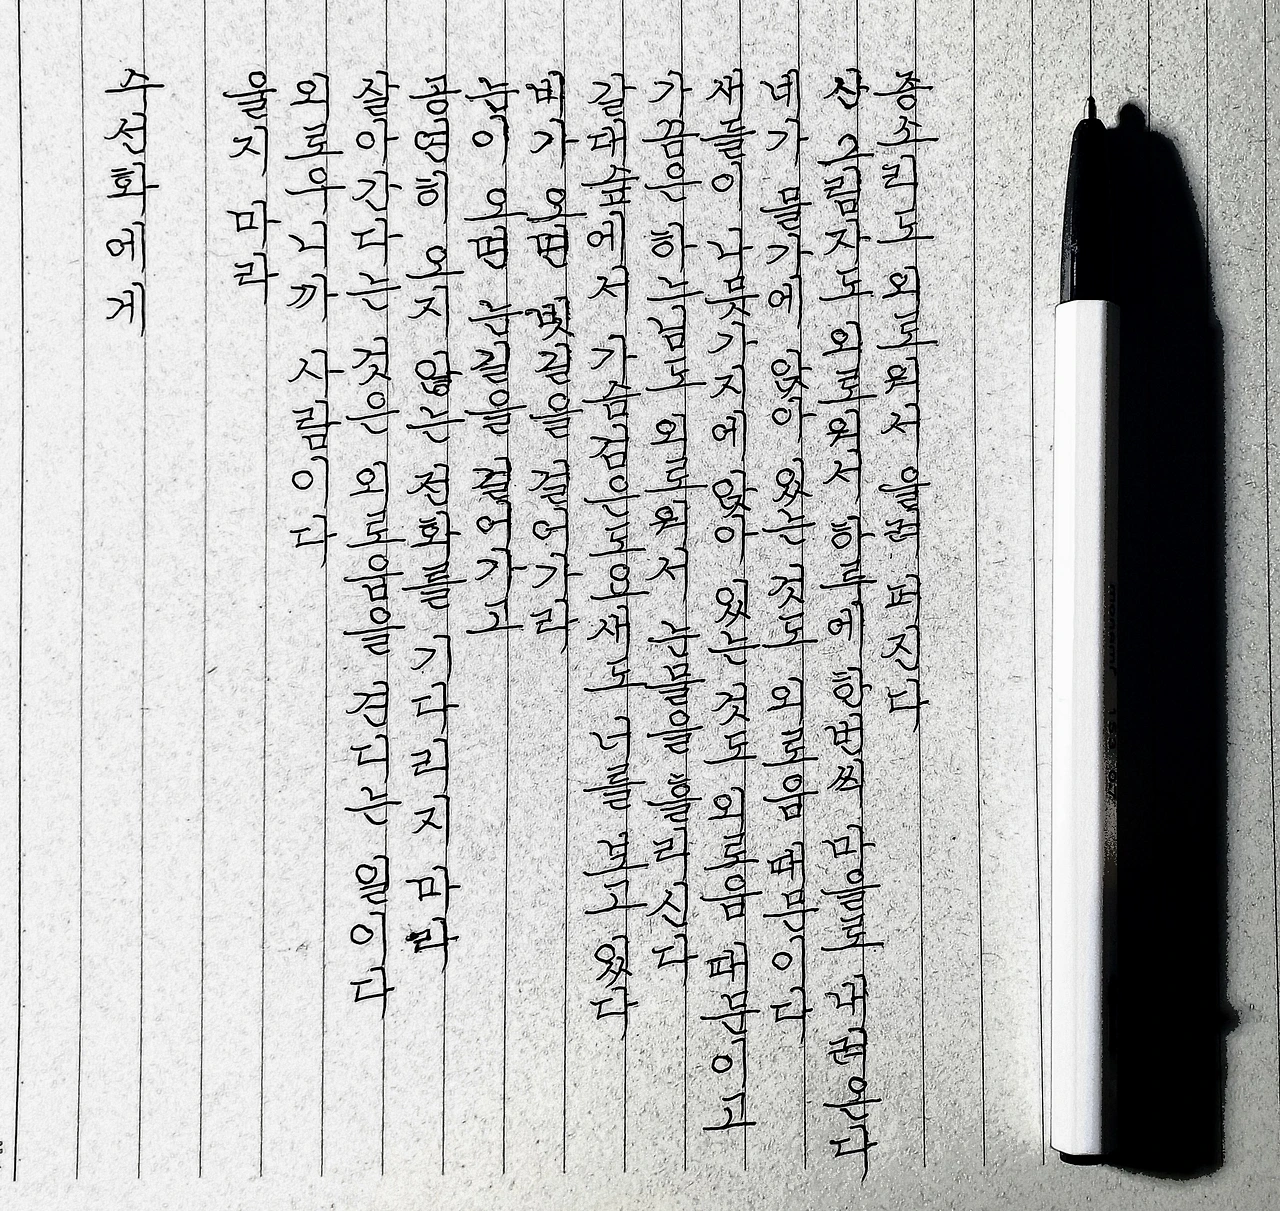 수선화에게
울지 마라
외로우니까 사람이다
살아간다는 것은 외로움을 견디는 일이다
공연히 오지 않는 전화를 기다리지 마라
눈이 오면 눈길을 걸어가고
비가 오면 빗길을 걸어가라
갈대숲에서 가슴검은도요새도 너를 보고 있다
가끔은 하느님도 외로워서 눈물을 흘리신다
새들이 나뭇가지에 앉아 있는 것도 외로움 때문이고
네가 물가에 앉아 있는 것도 외로움 때문이다
산 그림자도 외로워서 하루에 한번씩 마을로 내려온다
종소리도 외로워서 울려 퍼진다